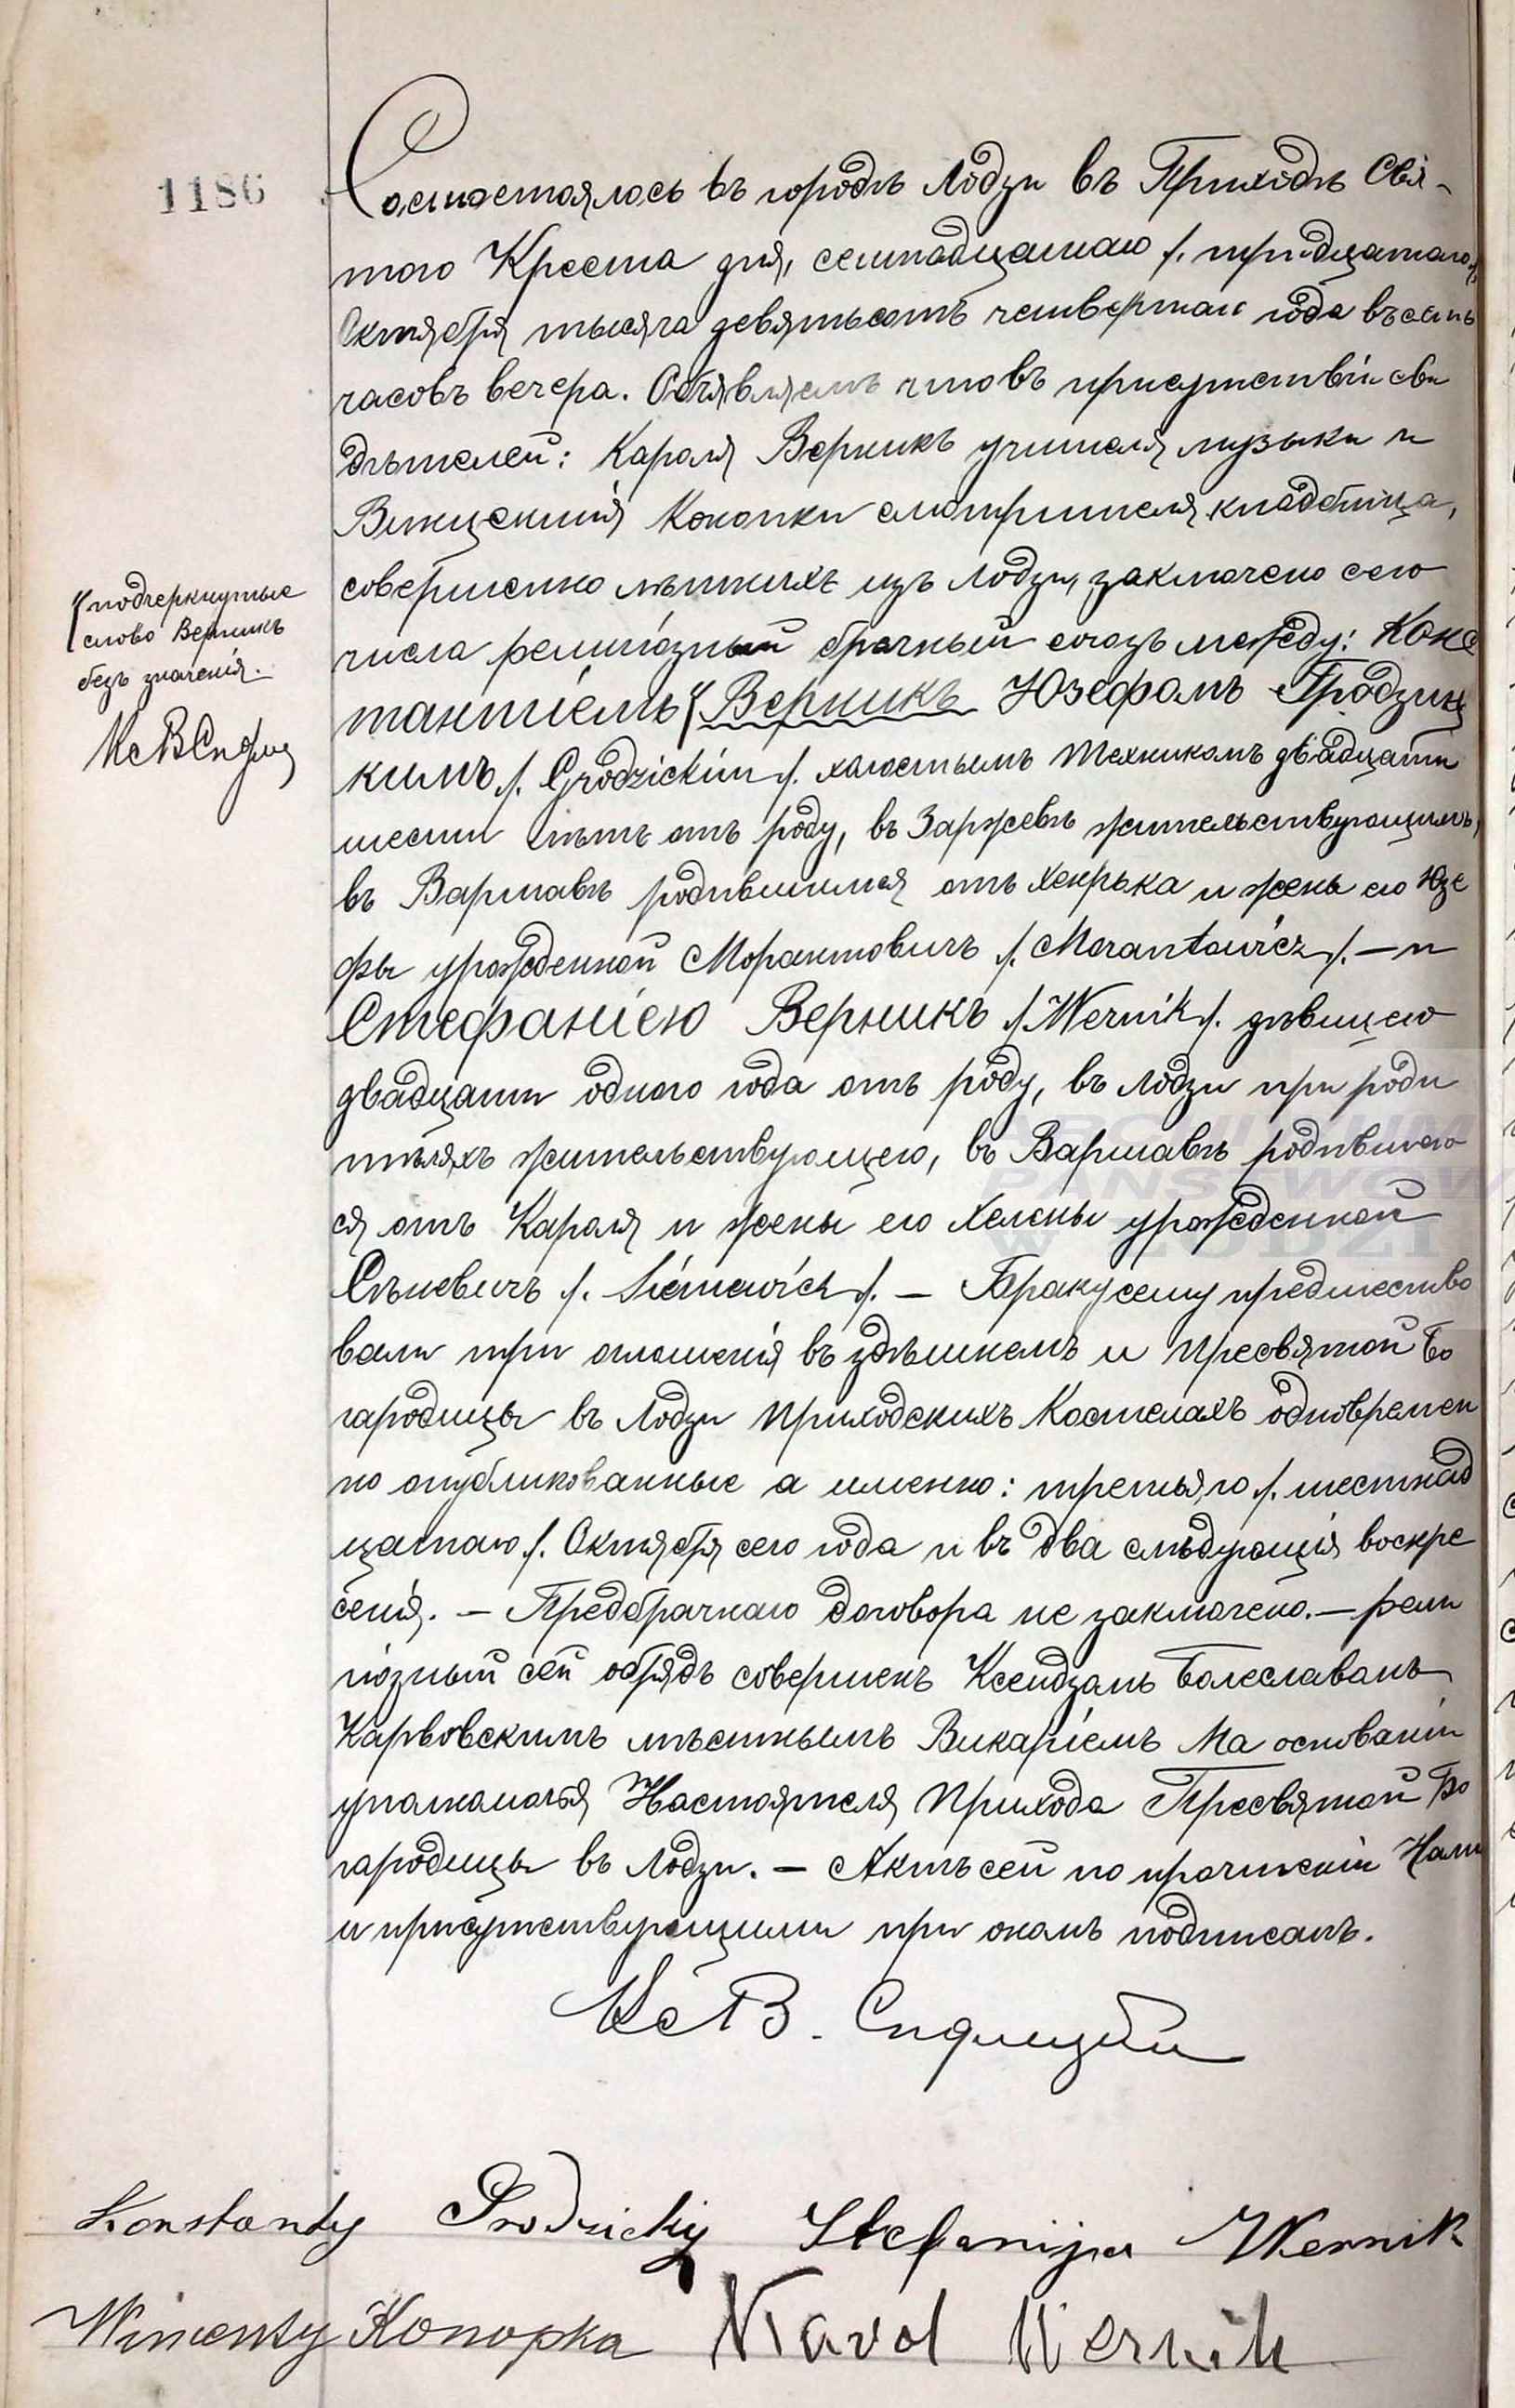 1186
Состоялось въ городѣ Лодзи въ Приходѣ Свя-
таго Креста дня, семнадцатаго /. тридцатаго/.
Октября тысяча девятьсотъ четвертаго года въ семь
часовъ вечера. Объявляемъ что въ присутствіи сви
дѣтелей: Кароля Верникъ учителя музыки и
Винцентія Конопки смотрителя кладбища,
совершеннолѣтнихъ изъ Лодзи, заключено сего
числа религіозный брачный союзъ между: Конс
тантіемъ { Верникъ Юзефомъ Гродзиц
кимъ /. Grodzickim /. холостымъ техникомъ двадцати
шести лѣтъ отъ роду, въ Заржевѣ жительствующимъ,
въ Варшавѣ родившимся отъ Хенрыка и жены его Юзе
фы урожденной Морантовичъ /. Morantowicz /. — и
Стефаніею Верникъ /. Wernik /. дѣвицею
двадцати одного года отъ роду, въ Лодзи при роди
тѣляхъ жительствующею, въ Варшавѣ родившею
ся отъ Кароля и жены его Хелены урожденной
Сѣневичъ /. Sieniewicz /. — Браку сему предшество
вали три оглашенія въ здѣшнемъ и Пресвятой Бо
городицы въ Лодзи приходскихъ Костелахъ одновремен
но опубликованные а именно: третьяго /. шестнад
цатаго /. Октября сего года и въ два слѣдующія воскре
сенія. — Предбрачнаго договора не заключено. — Рели
гіозный сей обрядъ совершенъ Ксендзомъ Болеславомъ
Карвовскимъ мѣстнымъ Викаріемъ На основаніи
уполномочія Настоятеля Прихода Пресвятой Бо
городицы въ Лодзи. — Актъ сей по прочтеніи Нами
и присутствующими при ономъ подписанъ.
{ подчеркнутые
слово Верникъ
безъ значенія.
Кс В
Кс В.
Konstanty Grodzicky Stefanija Wernik
Wincenty Konopka Karol Wernik
ARCHIWUM
PAŃSTWOW
W ŁODZI